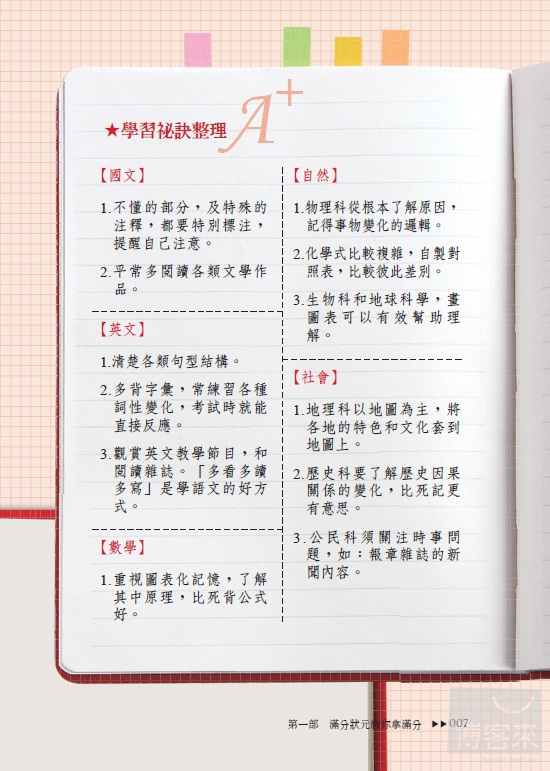 ★學習祕訣整理
A+
【國文】
1.不懂的部分，及特殊的
注釋，都要特別標注，
提醒自己注意。
2.平常多閱讀各類文學作
品。
【英文】
1.清楚各類句型結構。
2.多背字彙，常練習各種
詞性變化，考試時就能
直接反應。
3.觀賞英文教學節目，和
閱讀雜誌。「多看多讀
多寫」是學語文的好方
式。
【數學】
1.重視圖表化記憶，了解
其中原理，比死背公式
好。
【自然】
1.物理科從根本了解原因，
記得事物變化的邏輯。
2.化學式比較複雜，自製對
照表，比較彼此差別。
3.生物科和地球科學，畫
圖表可以有效幫助理
解。
【社會】
1.地理科以地圖為主，將
各地的特色和文化套到
地圖上。
2.歷史科要了解歷史因果
關係的變化，比死記更
有意思。
3.公民科須關注時事問
題，如：報章雜誌的新
聞內容。
第一部 滿分狀元教你拿滿分 ▶▶007
博客來